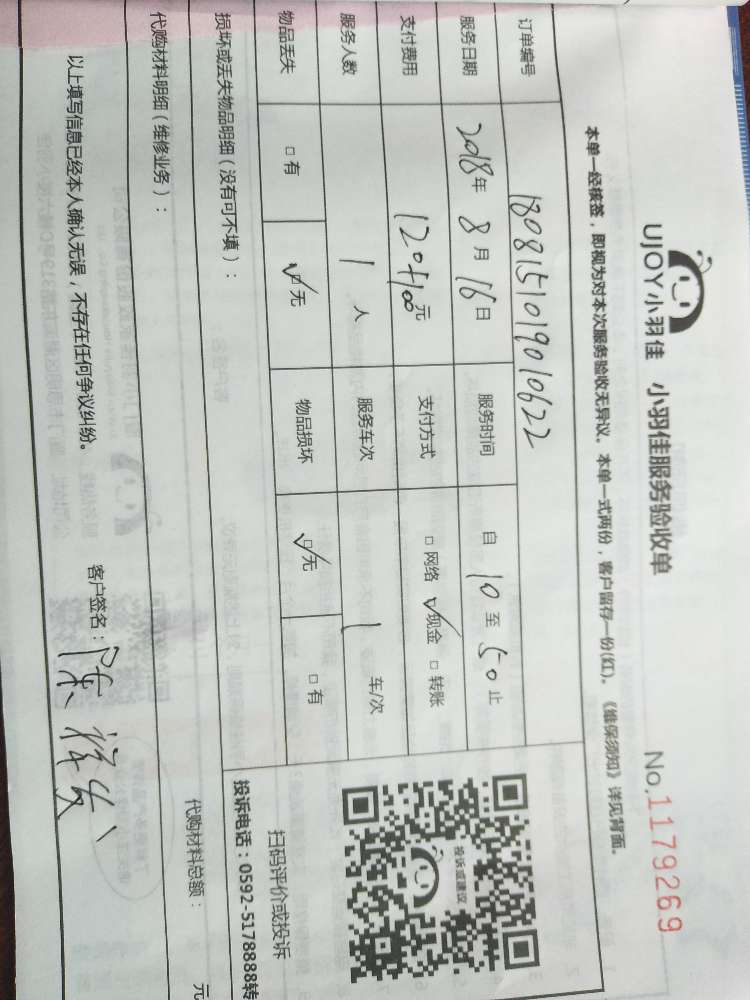 UJOY小羽佳 小羽佳服务验收单 No.1179269
本单一经核签，即视为对本次服务验收无异议。本单一式两份，客户留存一份(红)。《维保须知》详见背面。
订单编号 1808151019010622
服务日期 2018年 8月 16日 服务时间 自 10 至 50 止
支付费用 元 支付方式 □ 网络 ☑现金 □ 转账
服务人数 1 人 服务车次 1 车/次
物品丢失 □ 有 ☑无 物品损坏 ☑无 □ 有
投诉或建议
扫码评价或投诉
投诉电话：0592-5178888转
损坏或丢失物品明细（没有可不填）：
代购材料明细（维修业务）： 代购材料总额： 元
以上填写信息已经本人确认无误，不存在任何争议纠纷。 客户签名：陈